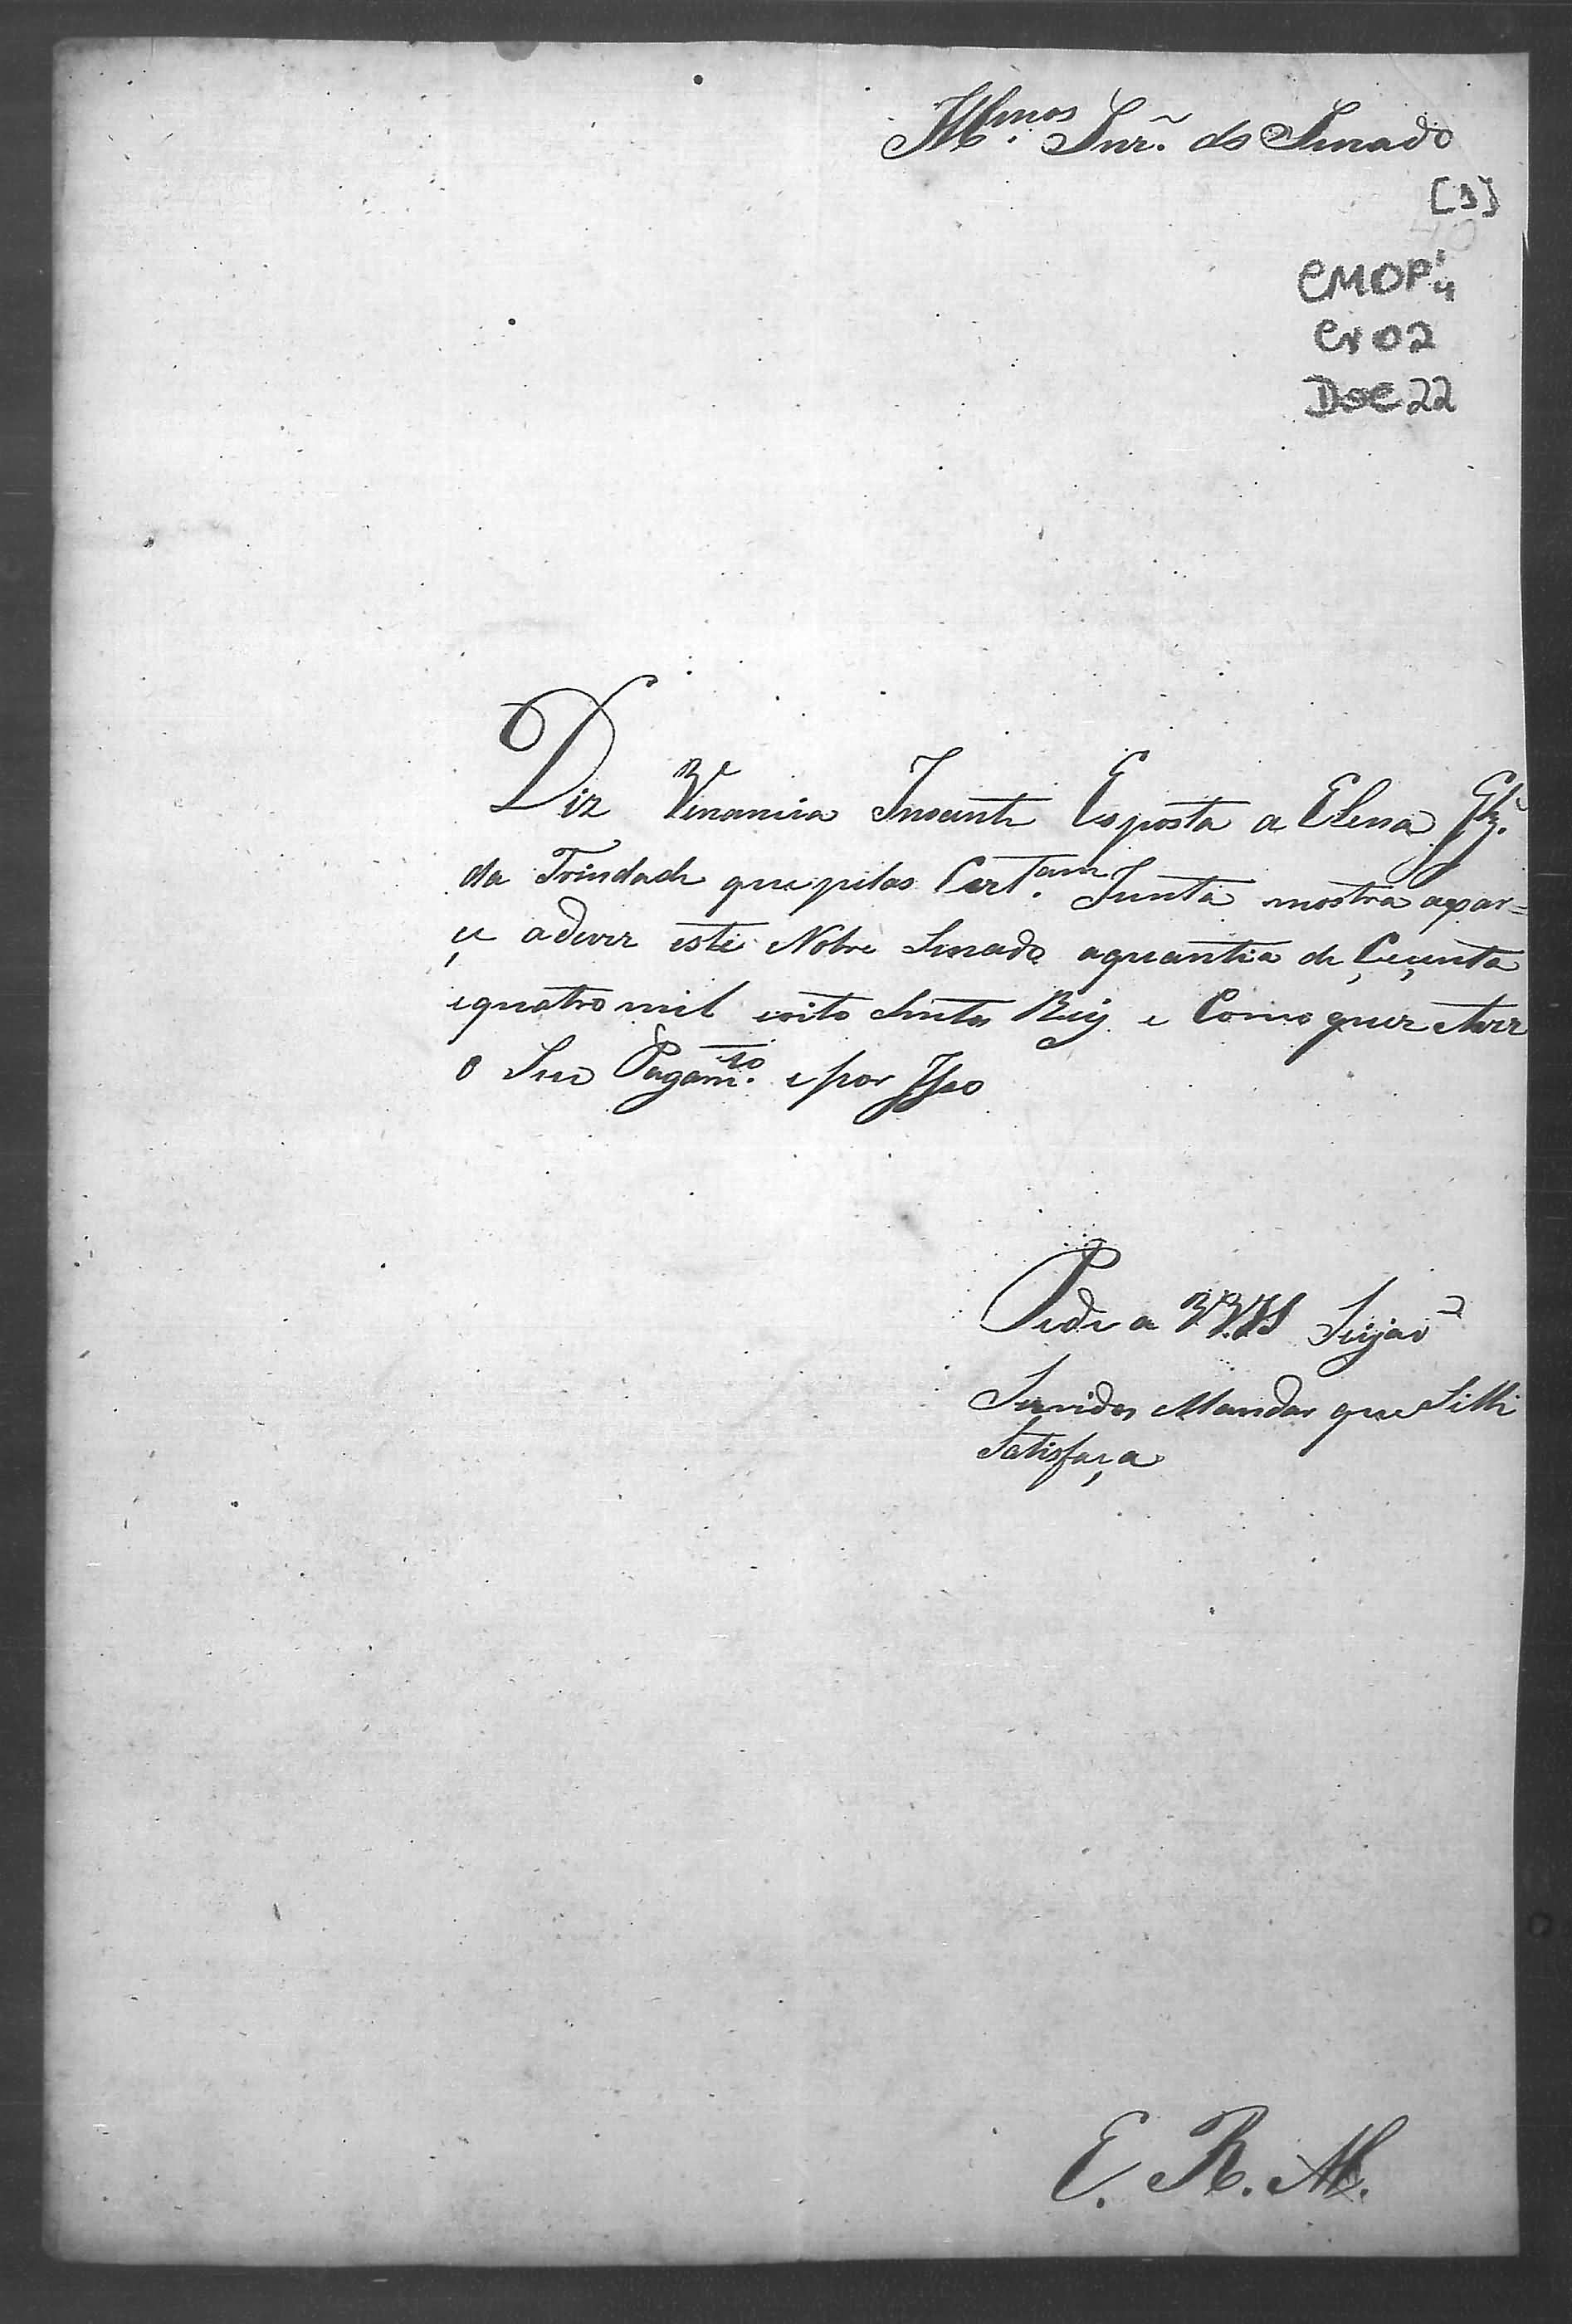 Illmos. Snr.̃ do Senado
[3]
CMOP
Cx 02
Doc 22
Diz Venancia Inocente Esposta a Elena Glz̃.
da Trindade que pelas Certam. Junta mostra apar=
çe adever este Nobre Senado aquantia de Çeçenta
equatro mil eoito Sentos Reis e Como quer aver
o Seu Pagamto. e por Isso
Pede a VVSS Sejaõ
Servidos Mandar que Selhe
Satisfaça
E. R. M.